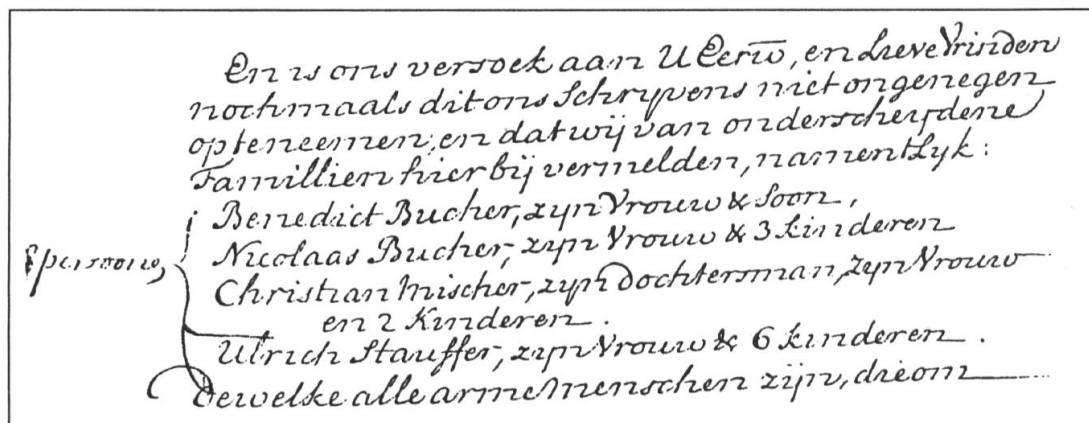 En is ons versoek aan U Eerw, en Lieve Vrinden
nochmaals dit ons Schryvens niet ongenegen
opteneemen, en dat wij van onderscheydene
Famillien hier bij vermelden, namentlyk:
Benedict Bucher, zyn Vrouw & Soon,
Nicolaas Bucher, zyn Vrouw & 3 kinderen
persoons,
Christian Mischer, zyn Dochtersman, zyn Vrouw
en 2 Kinderen.
Ulrich Stauffer, zyn Vrouw & 6 kinderen.
dewelke alle arme Menschen zijn, die om